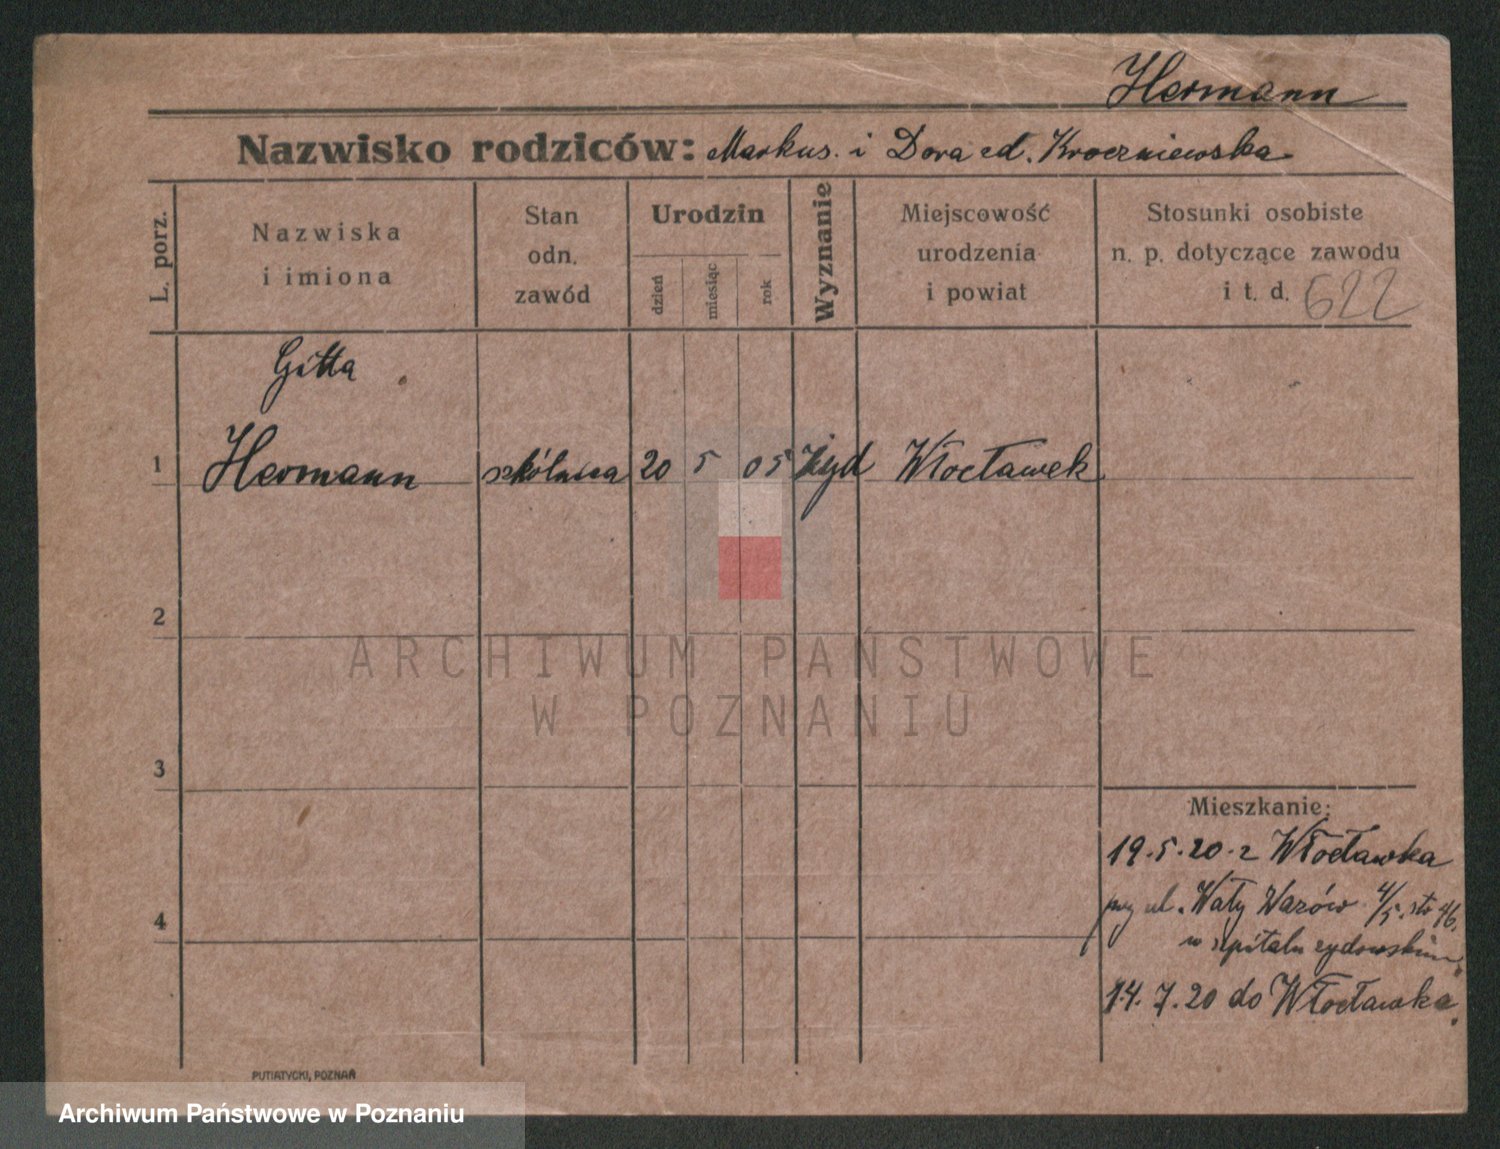 Hermann
Nazwisko rodziców: Markus. i Dora zd. Kroczniewska
L. porz.
Nazwiska
i imiona
Stan
odn.
zawód
Urodzin
dzień
miesiąc
rok
Wyznanie
Miejscowość
urodzenia
i powiat
Stosunki osobiste
n. p. dotyczące zawodu
i t. d. 622
Gitta
1 Hermann szkólnica 20 5 05 żyd Włocławek
2
3
4
ARCHIWUM PAŃSTWOWE
W POZNANIU
Mieszkanie:
19.5.20 z Włocławka
ul. Wały Wazów 4/5.
w szpitalu żydowskim
14.7.20 do Włocławka.
PUTIATYCKI, POZNAŃ
Archiwum Państwowe w Poznaniu